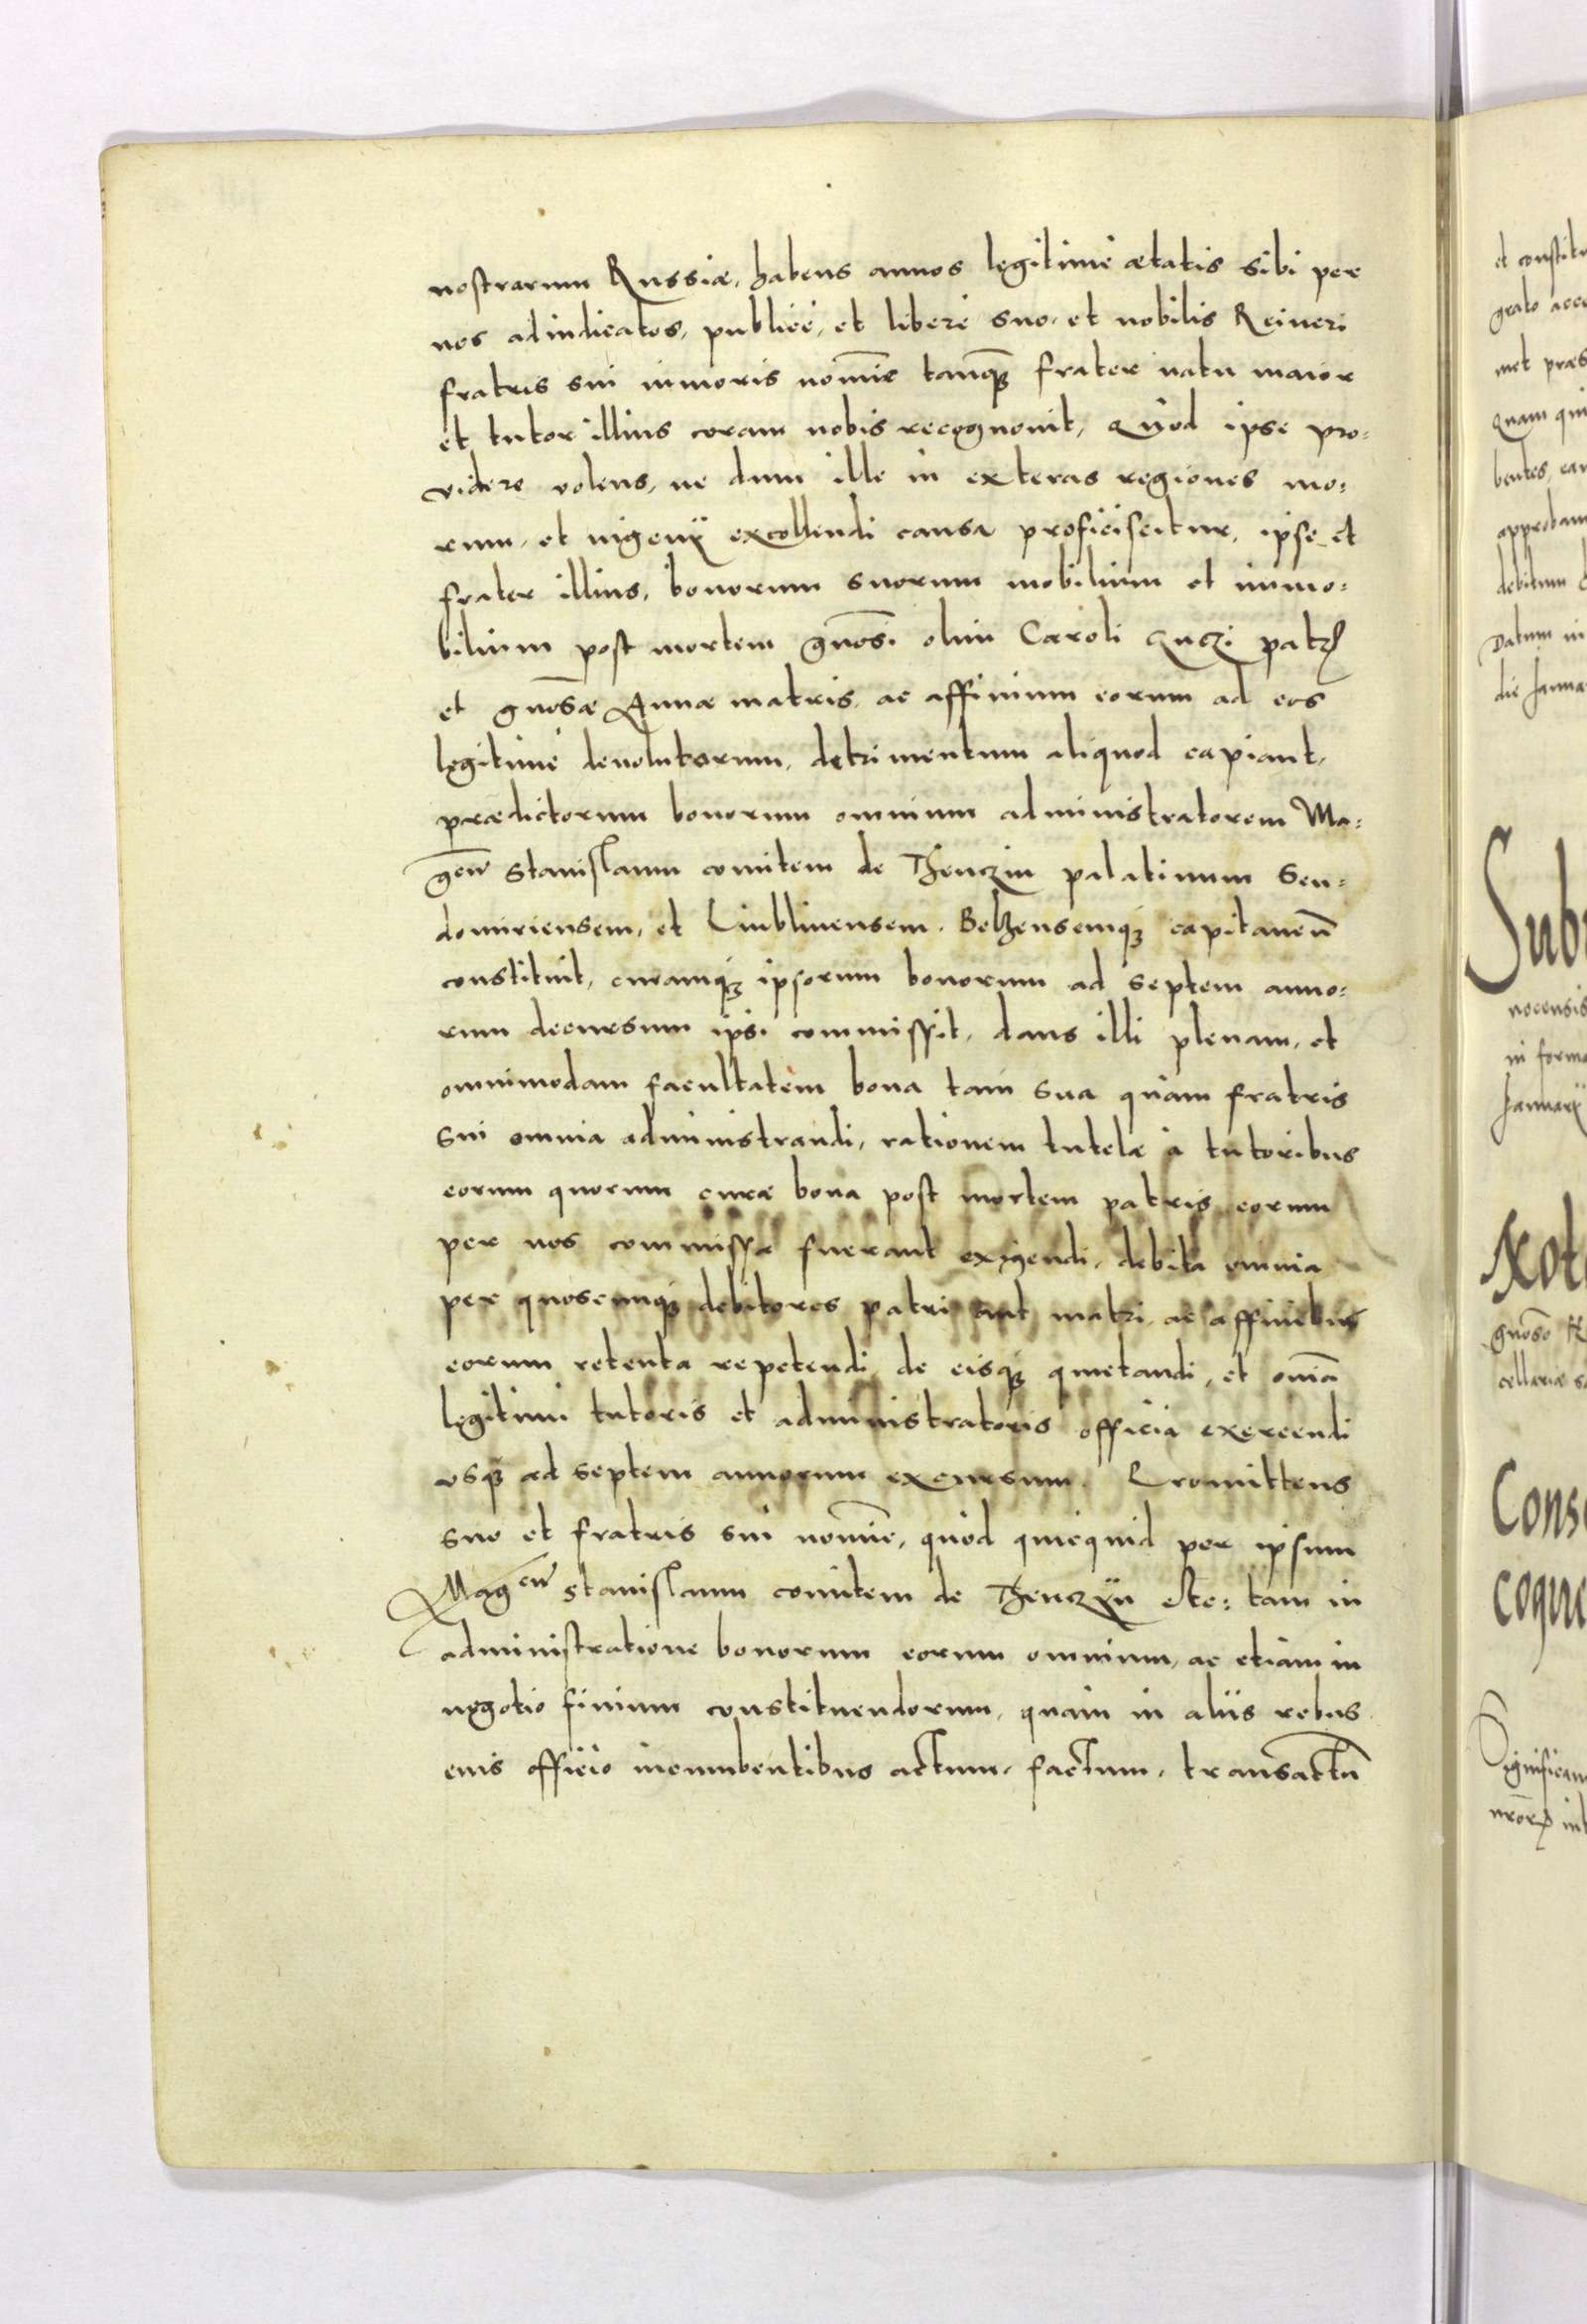 nostrarum Russiæ, habens annos legitimè ætatis sibi per
nos adiudicatos, publicè, et liberè suo, et nobilis Reineri
fratris sui minoris nomīe tanq̃ frater natu maior
et tutor illius coram nobis recognouit, Quod ipse pro:
videre volens, ne dum ille in exteras regiones mo:
rum, et ingenij excollendi causa proficiscitur, ipse et
frater illius, bonorum suorum mobilium et immo:
bilium post mortem gnosi olim Caroli patris
et gnosæ Annæ matris, ac affinium eorum ad eos
legitimè deuolutorum, detrimentum aliquod capiant,
prædictorum bonorum omnium administratorem Ma:
gcum Stanislaum comitem de Thenczin palatinum Sen:
domiriensem, et Liublinensem, Belzensemq; capitaneū
constituit, curamq; ipsorum bonorum ad septem anno:
rum decursum ipsi commissit, dans illi plenam, et
omnimodam facultatem bona tam sua quàm fratris
sui omnia administrandi, rationem tutelæ à tutoribus
eorum quorum curæ bona post mortem patris eorum
per nos commissa fuerant exigendi, debita omnia
per quoscumq; debitores patri aut matri, ac affinibus
eorum retenta repetendi, de eisq; quietandi, et omīa
legitimi tutoris et administratoris officia exercendi
vsq; ad septem annorum excursum. Promittens
suo et fratris sui nomīe, quòd quicquid per ipsum
Magcum Stanislaum comitem de Thenczijn etc: tam in
administratione bonorum eorum omnium, ac etiam in
negotio finium constituendorum, quàm in aliis rebus
eius officio incumbentibus actum, factum, transactū
et constitu
grato acce
met præs
Quam qui
bentes, ea
approbam
debitum
Datum in
die Janua
Subs
nocensis
in forma
Januarij
Not
gnoso R
cellariæ s
Conse
cogne
Significam
nrōr in